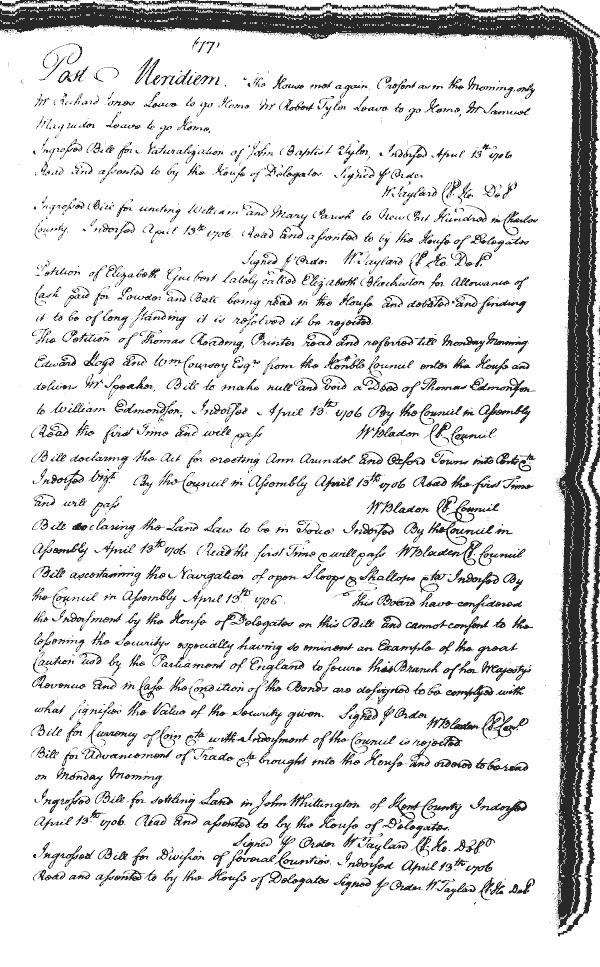 (17)
Post Meridiem. The House met again. Present as in the Morning only
Mr Richard Jones Leave to go Home Mr Robert Tyler Leave to go Home, Mr Samuel
Magruder Leave to go Home.
Ingrossed Bill for Naturalization of John Baptist Tyler, Indorsed April 13th 1706
Read and assented to by the House of Delegates Signed p Order
W Taylard Cl. Ho. Dels
Ingrossed Bill for uniting William and Mary Parish to New Port Hundred in Charles
County. Indorsed April 13th 1706. Read and assented to by the House of Delegates
Signed p Order W Taylard Cl. Ho. Dels.
Petition of Elizabeth Guibert lately called Elizabeth Blackiston for Allowance of
Cash paid for Powder and Ball being read in the House and debated and finding
it to be of long standing it is resolved it be rejected.
The Petition of Thomas Reading, Printer read and referred till Monday Morning
Edward Lloyd and Wm Coursey Esqrs from the Honble Council enter the House and
deliver Mr Speaker, Bill to make null and void a Deed of Thomas Edmondson
to William Edmondson, Indorsed April 13th 1706 By the Council in Assembly
Read the first Time and will pass W Bladen Cl. Council
Bill declaring the Act for erecting Ann Arundel and Oxford Towns into Ports &ca
Indorsed Vizt By the Council in Assembly April 13th 1706 Read the first Time
and will pass W Bladen Cl. Council
Bill declaring the Land Law to be in Force Indorsed By the Council in
Assembly April 13th 1706 Read the first Time & will pass W Bladen Cl. Council
Bill ascertaining the Navigation of open Sloops & Shallops &ca Indorsed By
the Council in Assembly April 13th 1706. This Board have considered
the Indorsment by the House of Delegates on this Bill and cannot consent to the
lessening the Securitys especially having so eminent an Example of the great
Caution used by the Parliament of England to secure this Branch of her Majesty's
Revenue and in Case the Condition of the Bonds are designed to be complyed with
what signifies the Value of the Security given. Signed p Order W Bladen Cl. Col.
Bill for Currency of Coin &ca with a Indorsment of the Council is rejected
Bill for Advancement of Trade &ca brought into the House and ordered to be read
on Monday Morning
Ingrossed Bill for settling Land in John Whittington of Kent County Indorsed
April 13th 1706. Read and assented to by the House of Delegates.
Signed p Order W Taylard Cl. Ho. Dels
Ingrossed Bill for Division of several Counties. Indorsed April 13th 1706
Read and assented to by the House of Delegates Signed p Order W Taylard Cl. Ho. Dels